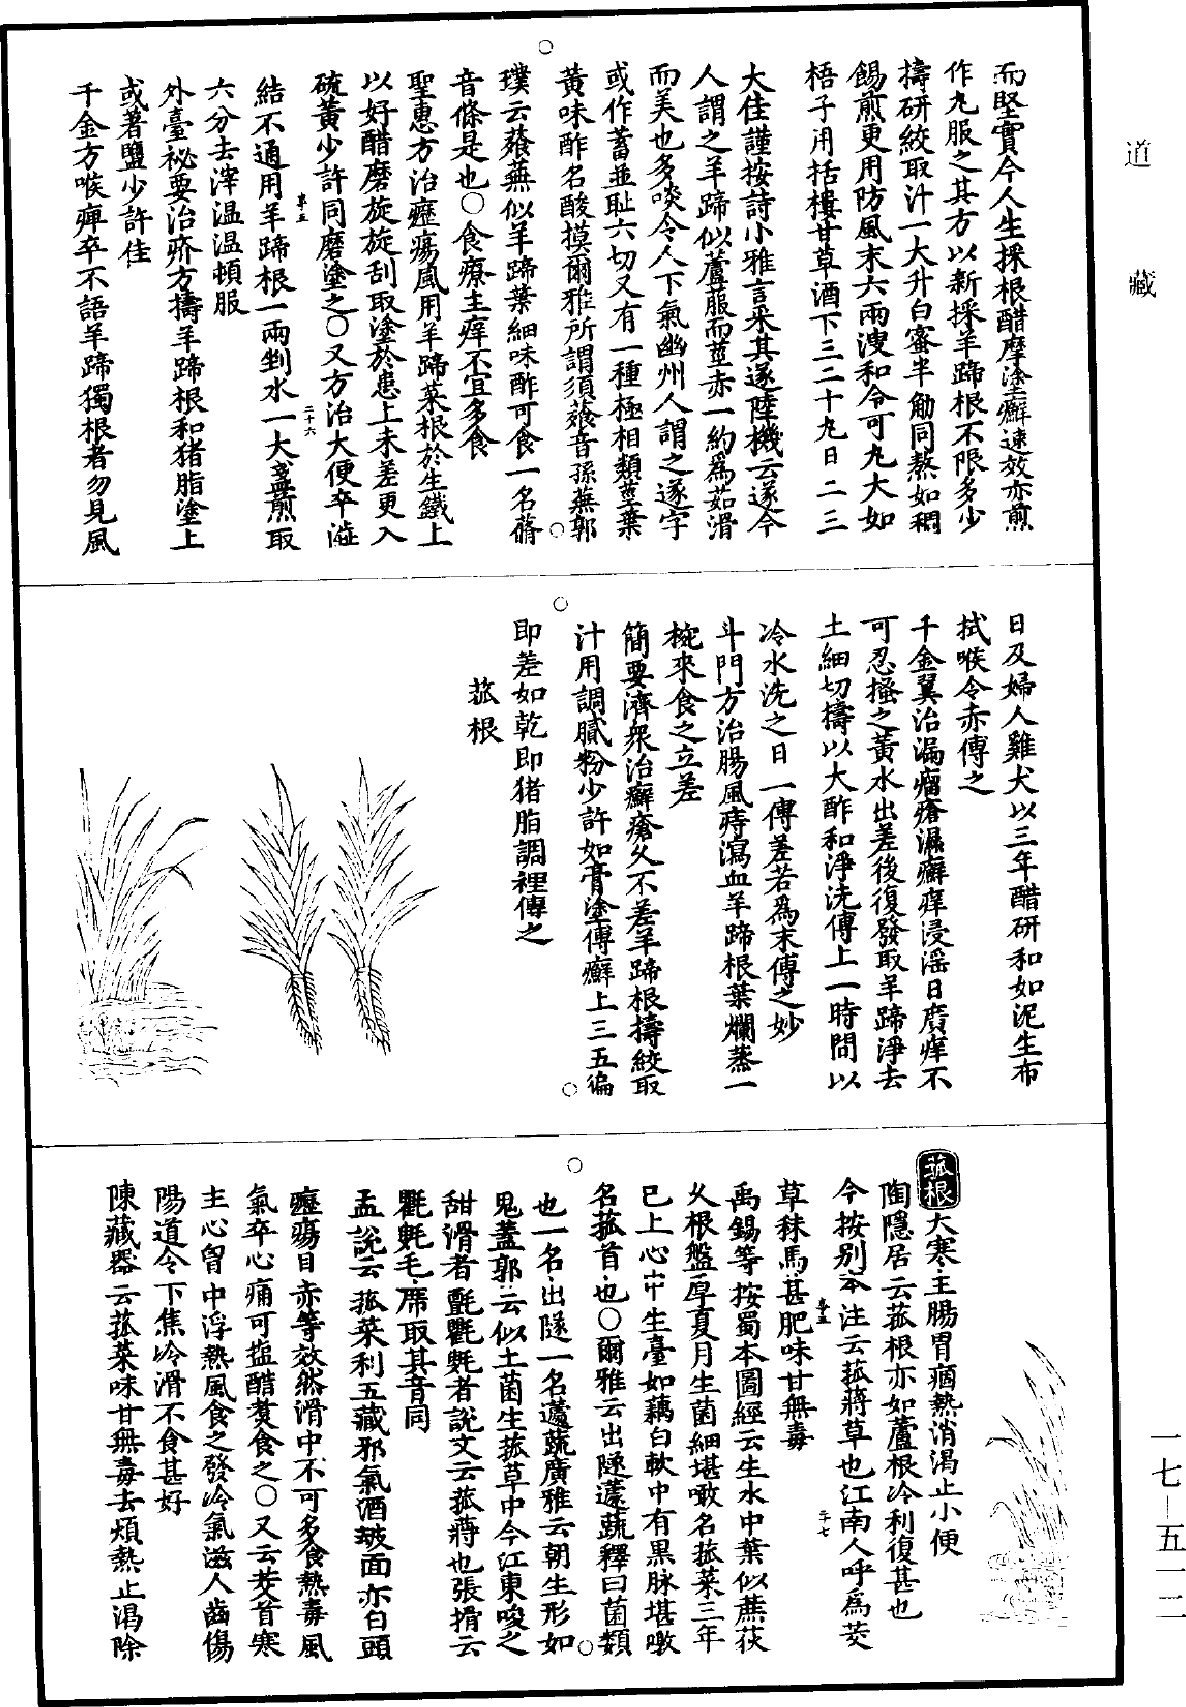 道藏
而堅實今人生採根醋摩塗癬速效亦煎
作丸服之其方以新採羊蹄根不限多少
擣研絞取汁一大升白蜜半觔同熬如稠
餳煎更用防風末六兩溲和令可丸大如
梧子用栝樓甘草酒下三二十丸日二三
大佳謹按詩小雅言采其蓫陸機云蓫今
人謂之羊蹄似蘆菔而莖赤一約爲茹滑
而美也多啖令人下氣幽州人謂之蓫字
或作蓄並恥六切又有一種極相類莖葉
黃味酢名酸摸爾雅所謂須薞音孫蕪郭
璞云薞蕪似羊蹄葉細味酢可食一名蓨
音條是也○食療主痒不宜多食
聖惠方治癧瘍風用羊蹄菜根於生鐵上
以好醋磨旋旋刮取塗於患上未差更入
硫黃少許同磨塗之○又方治大便卒澁
結不通用羊蹄根一兩剉水一大盞煎取
六分去滓溫溫頓服
外臺祕要治疥方擣羊蹄根和猪脂塗上
或著鹽少許佳
千金方喉痺卒不語羊蹄獨根者勿見風
二十六
日及婦人雞犬以三年醋研和如泥生布
拭喉令赤傅之
千金翼治漏瘤瘡濕癬痒浸淫日廣痒不
可忍搔之黃水出差後復發取羊蹄淨去
土細切擣以大酢和淨洗傅上一時間以
冷水洗之日一傅差若爲末傅之妙
斗門方治腸風痔瀉血羊蹄根葉爛蒸一
椀來食之立差
簡要濟衆治癬瘡久不差羊蹄根擣絞取
汁用調膩粉少許如膏塗傅癬上三五徧
即差如乾即猪脂調裡傅之
菰根
菰根大寒主腸胃痼熱消渴止小便
陶隱居云菰根亦如蘆根冷利復甚也
今按别本注云菰蔣草也江南人呼爲茭
草秣馬甚肥味甘無毒
二十七
禹錫等按蜀本圖經云生水中葉似蔗荻
久根盤厚夏月生菌細堪噉名菰菜三年
已上心中生臺如藕白軟中有黑脉堪噉
名菰首也○爾雅云出隧蘧蔬釋曰菌類
也一名出隧一名蘧蔬廣雅云朝生形如
鬼蓋郭云似土菌生菰草中今江東啖之
甜滑者氍氀者說文云菰蔣也張揖云
氍氀毛席取其音同
孟詵云菰菜利五藏邪氣酒皶面亦白頭
癧瘍目赤等效然滑中不可多食熱毒風
氣卒心痛可塩醋煑食之○又云茭首寒
主心胷中浮熱風食之發冷氣滋人齒傷
陽道令下焦冷滑不食甚好
陳藏器云菰菜味甘無毒去煩熱止渴除
一七—五一二